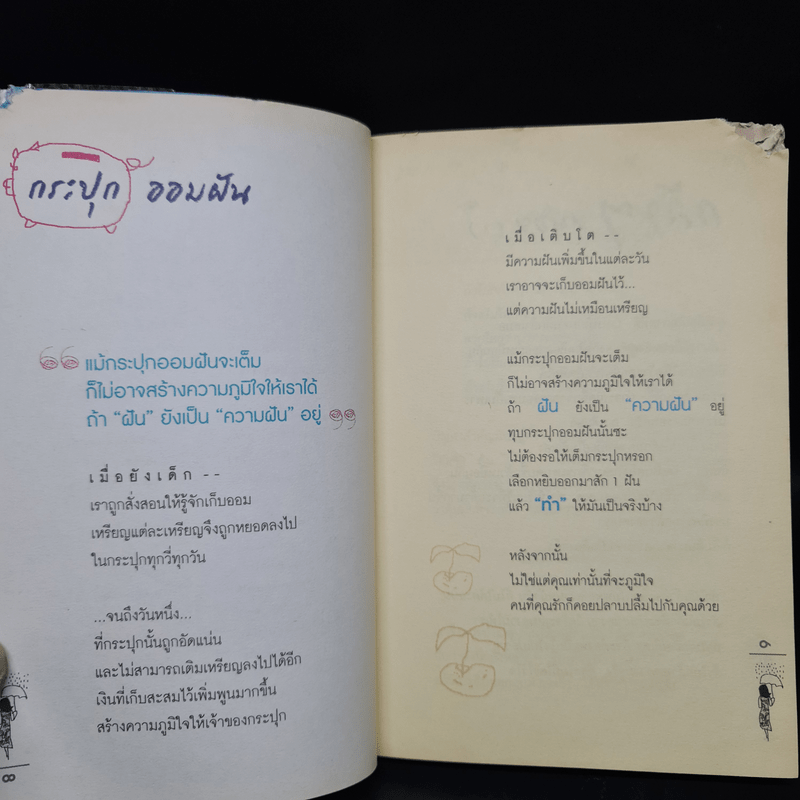 กระปุก ออมฝัน
แม้กระปุกออมฝันจะเต็ม
ก็ไม่อาจสร้างความภูมิใจให้เราได้
ถ้า “ฝัน” ยังเป็น “ความฝัน” อยู่
เมื่อยังเด็ก --
เราถูกสั่งสอนให้รู้จักเก็บออม
เหรียญแต่ละเหรียญจึงถูกหยอดลงไป
ในกระปุกทุกวี่ทุกวัน
...จนถึงวันหนึ่ง...
ที่กระปุกนั้นถูกอัดแน่น
และไม่สามารถเติมเหรียญลงไปได้อีก
เงินที่เก็บสะสมไว้เพิ่มพูนมากขึ้น
สร้างความภูมิใจให้เจ้าของกระปุก
8
เมื่อเติบโต --
มีความฝันเพิ่มขึ้นในแต่ละวัน
เราอาจจะเก็บออมฝันไว้...
แต่ความฝันไม่เหมือนเหรียญ
แม้กระปุกออมฝันจะเต็ม
ก็ไม่อาจสร้างความภูมิใจให้เราได้
ถ้า ฝัน ยังเป็น “ความฝัน” อยู่
ทุบกระปุกออมฝันนั้นซะ
ไม่ต้องรอให้เต็มกระปุกหรอก
เลือกหยิบออกมาสัก 1 ฝัน
แล้ว “ทำ” ให้มันเป็นจริงบ้าง
หลังจากนั้น
ไม่ใช่แต่คุณเท่านั้นที่จะภูมิใจ
คนที่คุณรักก็คอยปลาบปลื้มไปกับคุณด้วย
9